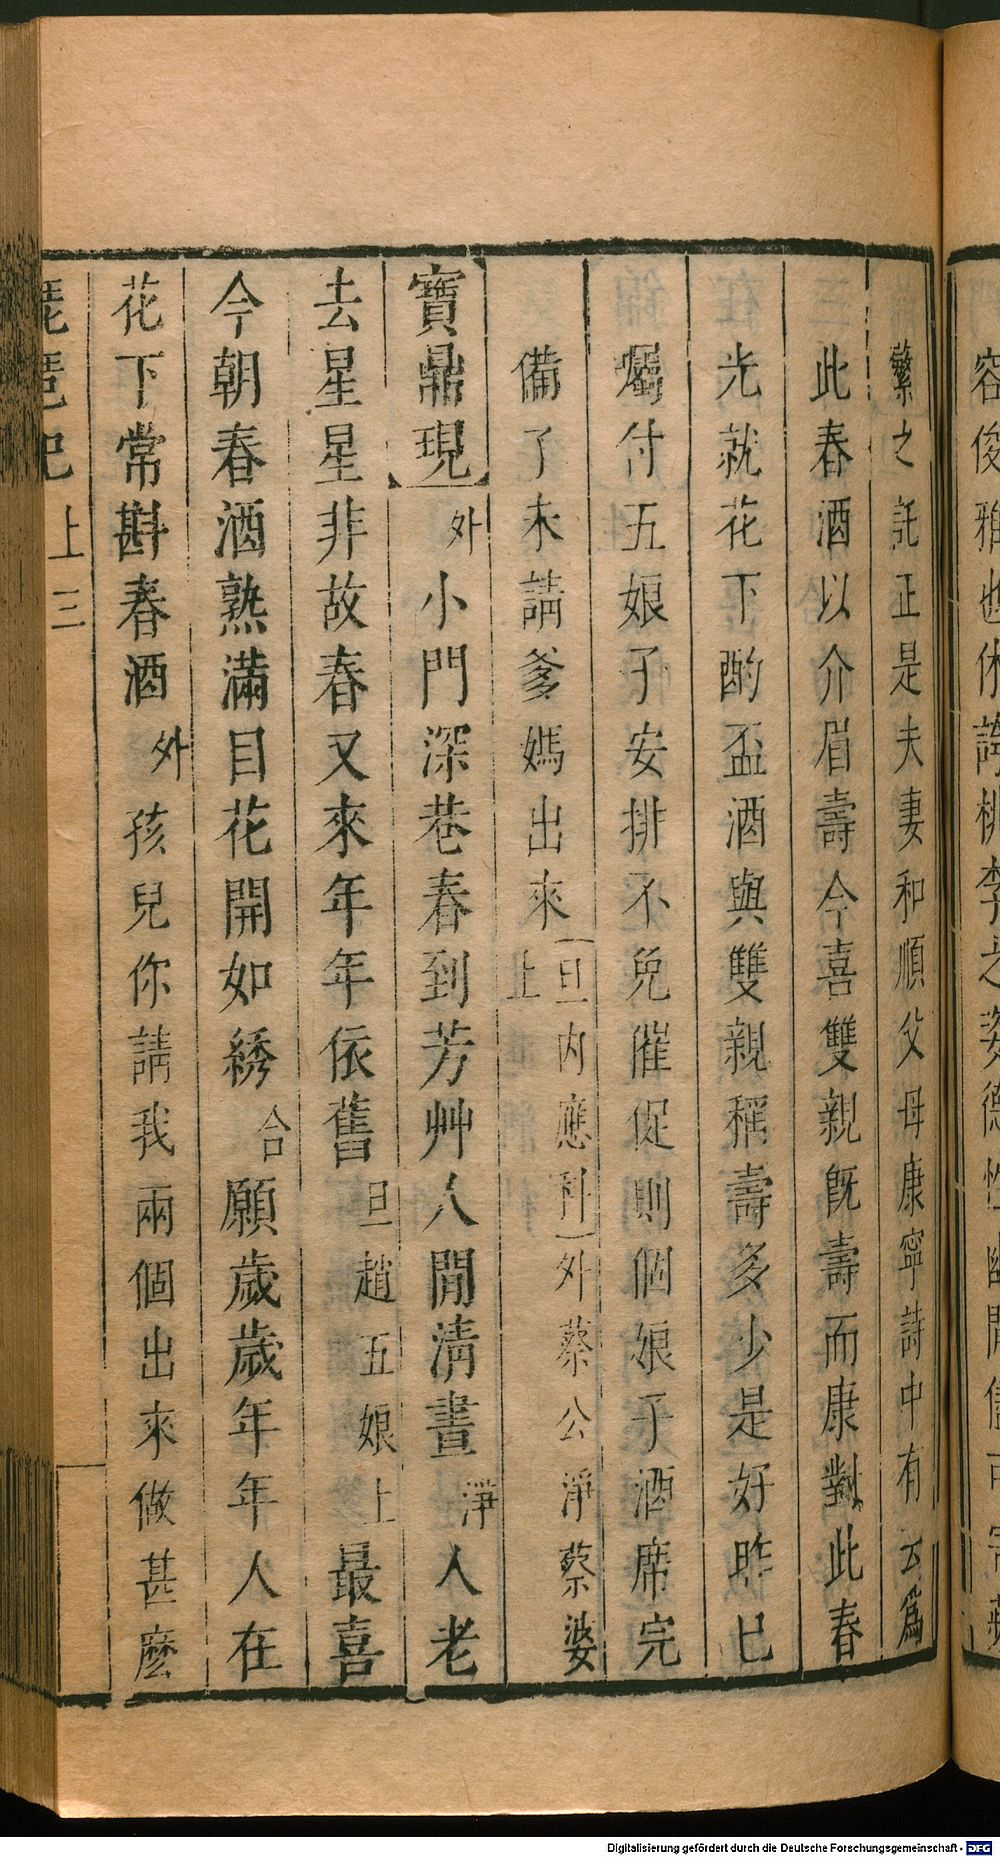 容俊雅也休誇桃李之姿德性幽閒儘可寄蘋
蘩之託正是夫妻和順父母康寧詩中有云爲
此春酒以介眉壽今喜雙親旣壽而康對此春
光就花下酌盃酒與雙親稱壽多少是好昨已
囑付五娘子安排不免催促則個娘子酒席完
備了未請爹媽出來(旦內應科)外蔡公淨蔡婆上
寶鼎現外小門深巷春到芳艸人閒清晝淨人老
去星星非故春又來年年依舊旦趙五娘上最喜
今朝春酒熟滿目花開如綉合願歲歲年年人在
花下常斟春酒外孩兒你請我兩個出來做甚麽
琵琶記上 三
Digitalisierung gefördert durch die Deutsche Forschungsgemeinschaft - DFG